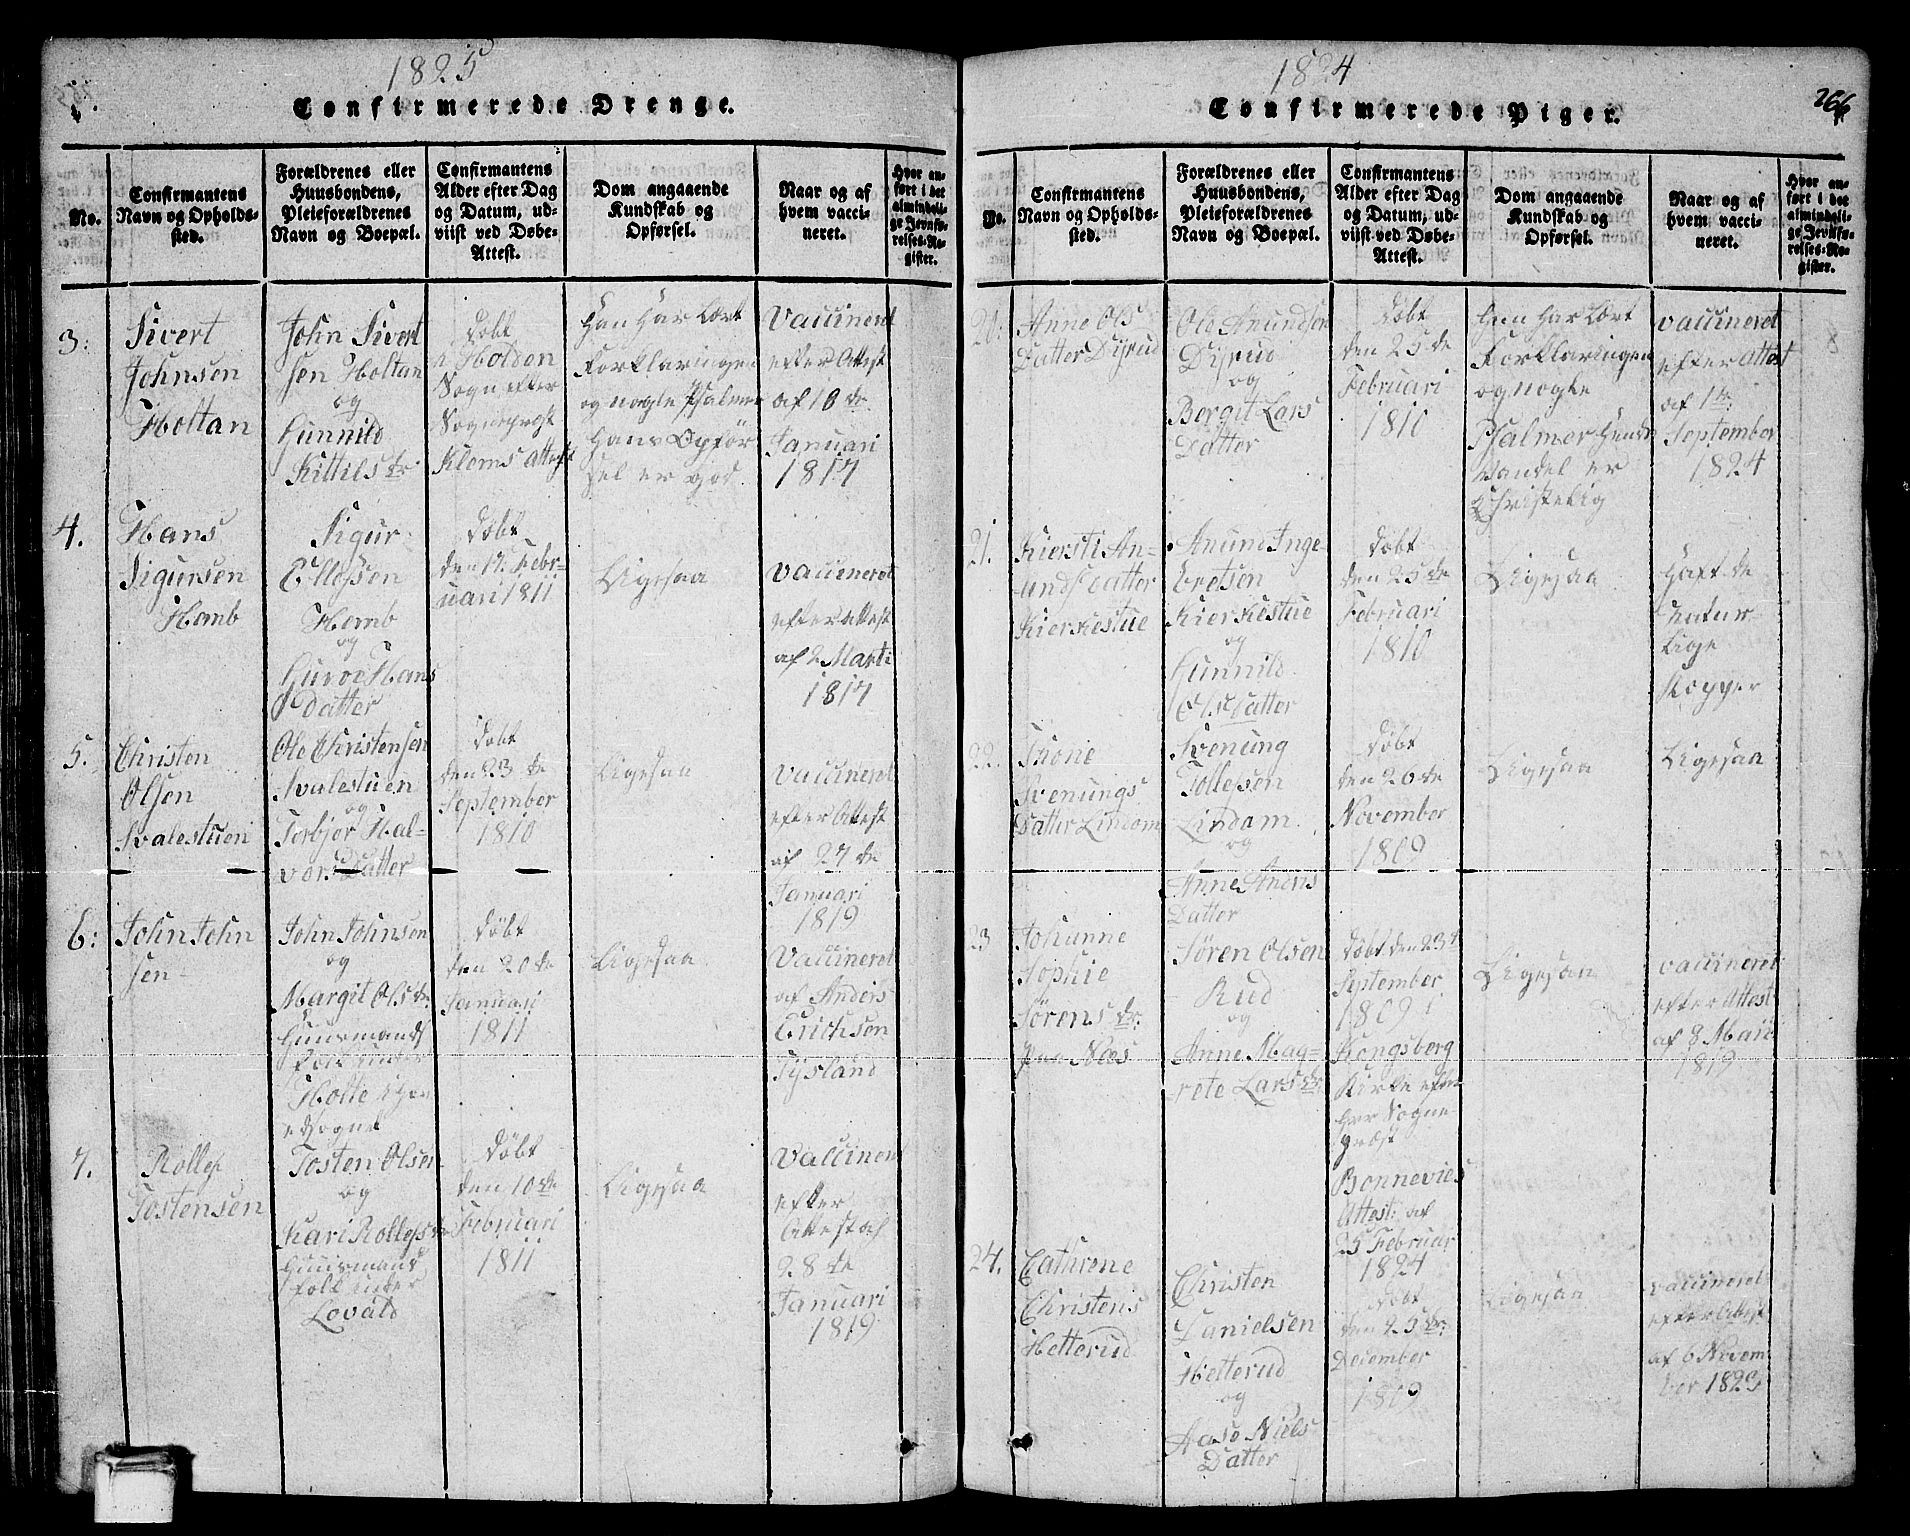 1825
Confirmerede Drenge.
No.
Confirmantens
Navn og Opholds-
sted.
Forældrenes eller
Huusbondens,
Pleieforældrenes
Navn og Boepæl.
Confirmantens
Alder efter Dag
og Datum, ud-
viist ved Døbe-
Attest.
Dom angaaende
Kundskab og
Opførsel.
Naar og af
hvem vacci-
neret.
Hvor an-
ført i det
almindeli-
ge Jevnfø-
relses-Re-
gister.
3:
Sivert
Johnsen
Holtan
John Sivert
sen Holtan
og
Gunnild
Kittils dr.
Døbt
i Holden
Sogn efter
Sognepræst
Klems attest
Han Har Lært
Forklaringen
og nogle Psalmer
Hans Opfør
sel er god.
Vaccineret
efter Attest
af 10 de
Januari
1817
4.
Hans
Sigursen
Homb
Sigur
Ellefsen
Homb
og
Guroe Hans
Datter
Døbt
den 17. Febr-
uari 1811
Ligesaa
Vaccineret
efter Attest
af 2 Marti
1817
5.
Christen
Olsen
Svalestuen
Ole Christensen
Svalestuen
og
Torbjor Hal-
vors Datter
Døbt
den 23 de
September
1810
Ligesaa
Vaccineret
efter Attest
af 27 de
Januari
1819
6:
John John
sen
John Johnsen
og
Margit Ols dr.
Huusmands
folk under
Holte i
Døbt
den 20 de
Januari
1811
Ligesaa
Vaccineret
af Anders
Erichsen
Tysland
7.
Rollef
Tostensen
Tosten Olsen
og
Kari Rollefs dr
Huusmands
folk under
Lovald
Døbt
den 10 de
Februari
1811
Ligesaa
Vaccineret
efter
Attest af
28 de
Januari
1819
1824
266
Confirmerede Piger.
No.
Confirmantens
Navn og Opholds-
sted.
Forældrenes eller
Huusbondens,
Pleieforældrenes
Navn og Boepæl.
Confirmantens
Alder efter Dag
og Datum, ud-
viist ved Døbe-
Attest.
Dom angaaende
Kundskab og
Opførsel.
Naar og af
hvem vacci-
neret.
Hvor an-
ført i det
almindeli-
ge Jevnfø-
relses-Re-
gister.
20.
Anne Ols
Datter Dyrud
Ole Anundsen
Dyrud
og
Bergit Lars
Datter
Døbt
den 25 de
Februari
1810
Hun Har Lært
Forklaringen
og nogle
Psalmer Hendes
Vandel er
Christelig
Vaccineret
efter Attest
af 1te
September
1824
21.
Kiersti An-
unds Datter
Kierkestue
Anun Inge-
bretsen
Kierkestue
og
Gunnild
Ols Datter
Døbt
den 25 de
Februari
1810
Ligesaa
Haft de
Natur-
lige
Kopper
22.
Thone
Svenungs
Datter Lindom
Svenung
Tollefsen
Lindam
og
Anne Andris
Datter
Døbt
den 26 de
November
1809
Ligesaa
Ligesaa
23
Johanne
Sophie
Sørens dr.
paa Næs
Søren Olsen
Rud
og
Anne Mag-
rete Lars dr
Døbt den 23 d
September
1809 i
Kongsberg
Kirke efter
Her Sogne
præst
Bonnevies
Attest: af
25 Februar
1824
Ligesaa
Vaccineret
efter Attest
af 8 Maii
1819
24.
Cathrene
Christens
Hetterud
Christen
Danielsen
Hetterud
og
Aase Niels
Datter
Døbt
den 25 de
December
1809
Ligesaa
Vaccineret
efter Attest
af 6 Novem
ber 1823